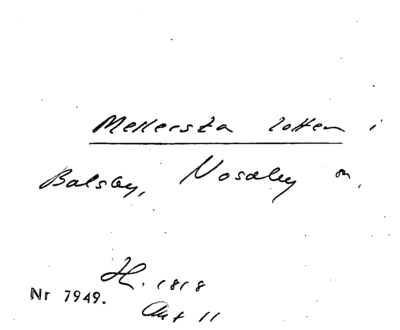 Mellersta lotten i
Balsby, Nosaby sn,
H. 1818
Nr 7949.
Akt 11